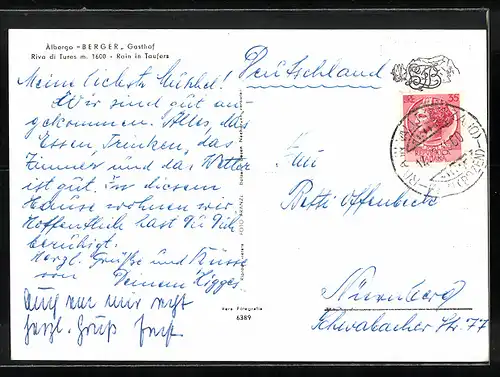 Albergo "BERGER" Gasthof
Riva di Tures m. 1600 - Rain in Taufers
Meine liebste Mühkel!
Wir sind gut an
gekommen. Alles, das
Essen, Trinken, das
Zimmer und das Wetter
ist gut. In diesem
Hause wohnen wir.
Hoffentlich hast Du Dich
beruhigt.
Herzl. Grüße und Küsse
von Deinem
Auch von mir recht
herzl. Gruß
Deutschland
An
Betti Offenbeck
Nürnberg
Schwabacher Str. 77
FOTO FRANZL
Vera Fotografia
6389